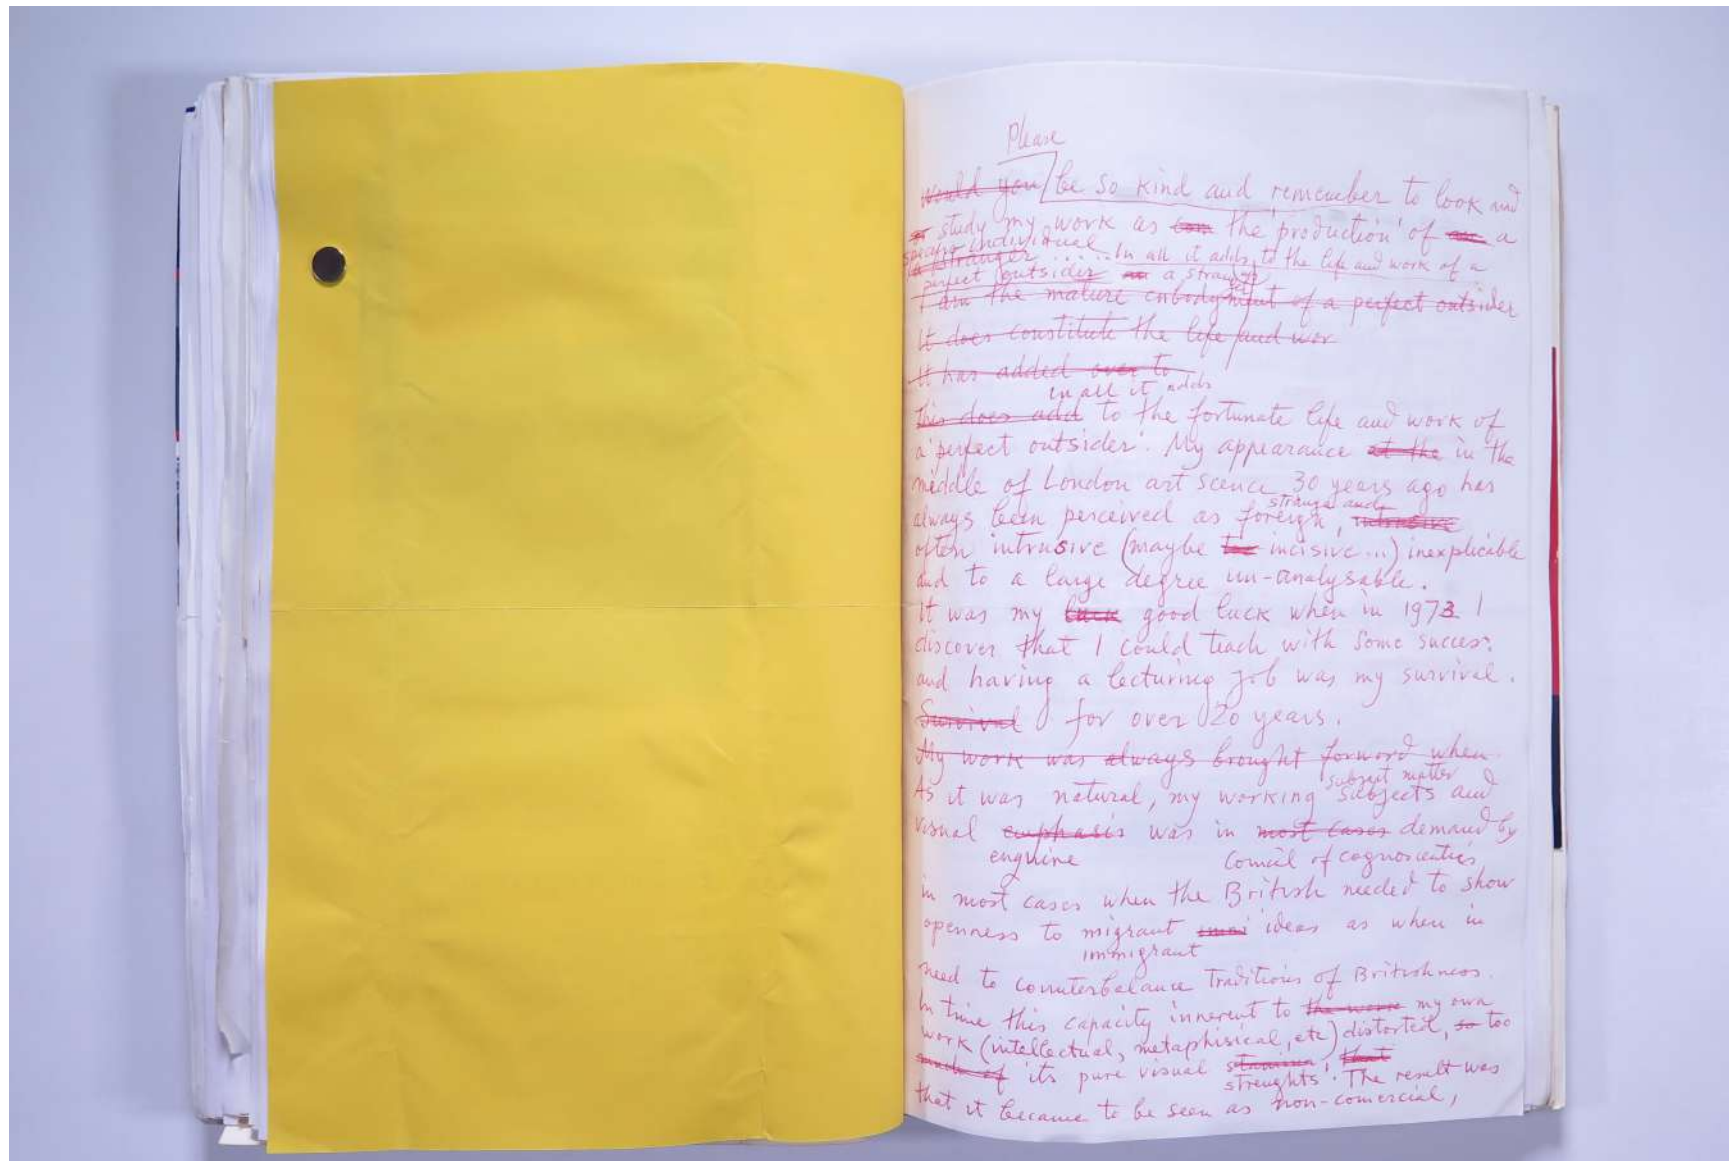 Please
Would you be so kind and remember to look and
or study my work as the 'production' of a
specific individual
stranger ..... In all it adds to the life and work of a
perfect outsider a stranger
I am the mature embodyment of a perfect outsider
It does constitute the life and wor
It has added over to
in all it adds
This does add to the fortunate life and work of
a 'perfect outsider'. My appearance at the in the
middle of London art scence 30 years ago has
strange and
always been perceived as foreign, intrusive
often intrusive (maybe too incisive...) inexplicable
and to a large degree un-analysable.
It was my luck good luck when in 1973 I
discover that I could teach with some success.
and having a lecturing job was my survival.
Survival for over 20 years.
My work was always brought forward when
subject matter
As it was natural, my working subjects and
visual emphasis was in most cases demand by
enguine Comcil of cognoscenties
in most cases when the British needed to show
openness to migrant ideas as when in
immigrant
need to counterbalance Traditions of Britishness.
In time this capacity innerent to the work my own
work (intellectual, metaphisical, etc) distorted, so too
much of its pure visual stamina, that
strenghts'. The result was
that it became to be seen as non-comercial,